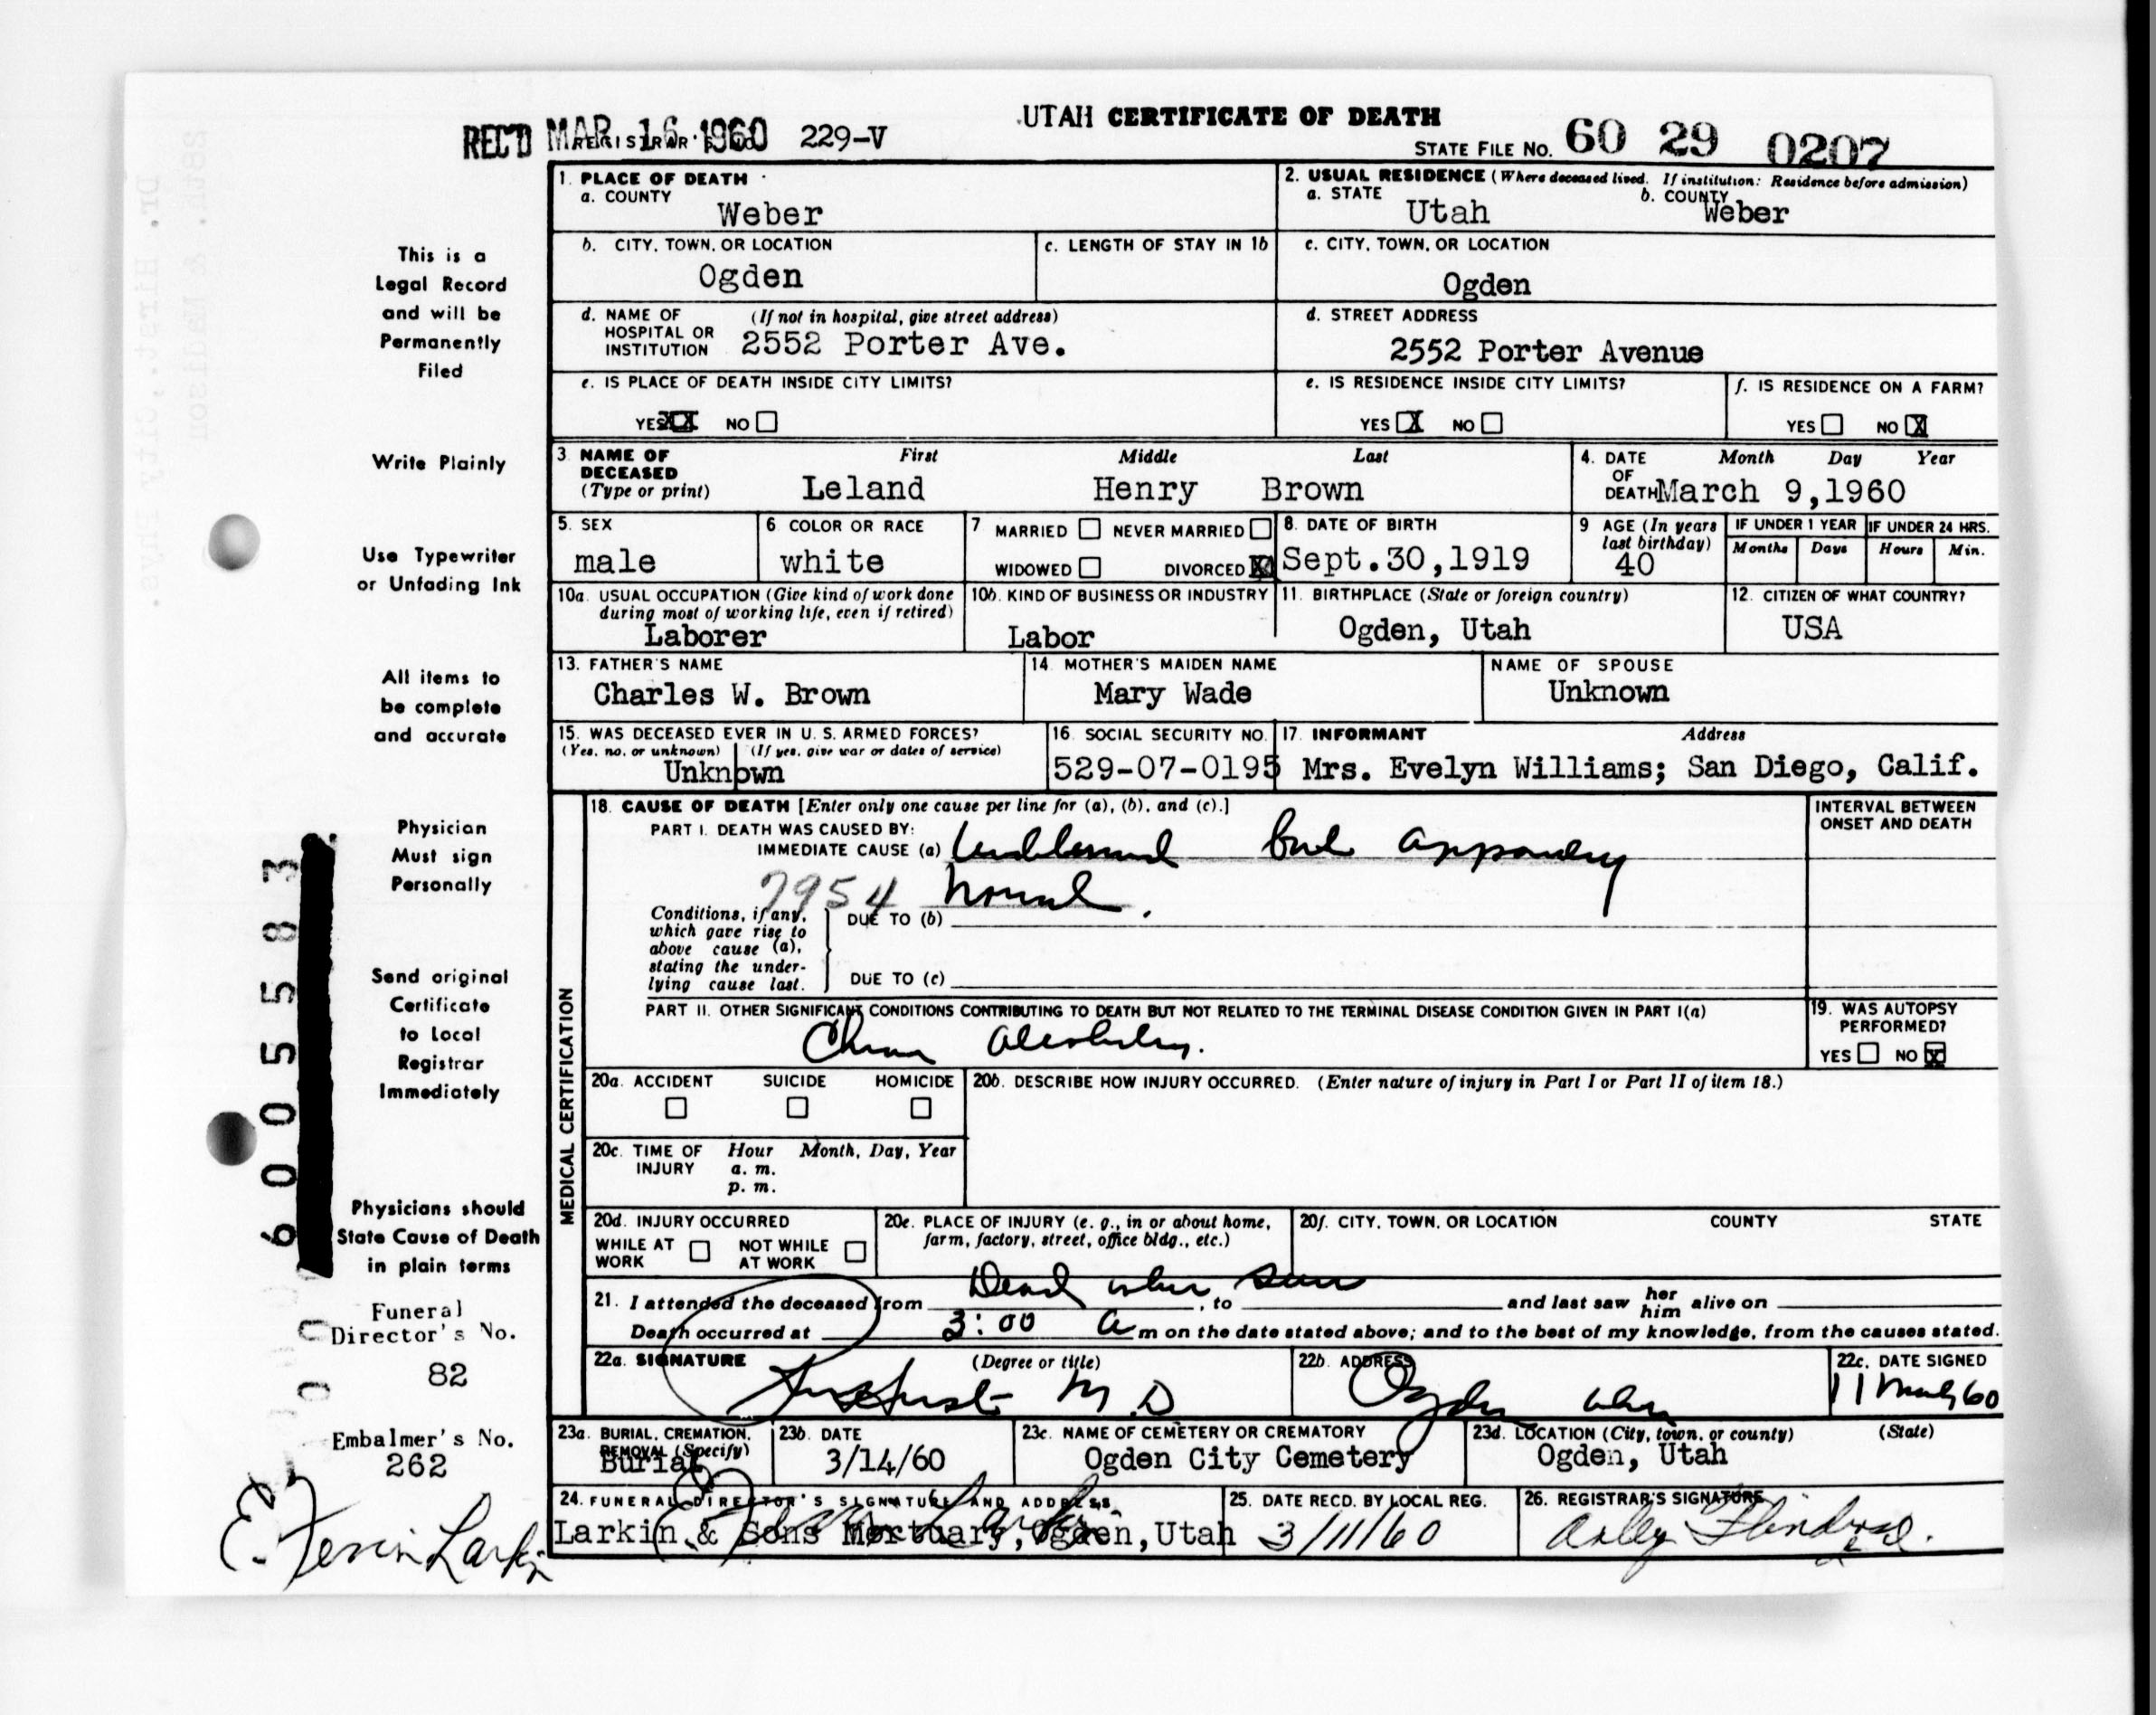 UTAH CERTIFICATE OF DEATH
REC'D MAR 16 1960 229-V
STATE FILE NO. 60 29 0207
1. PLACE OF DEATH
a. COUNTY
Weber
2. USUAL RESIDENCE (Where deceased lived. If institution: Residence before admission)
a. STATE Utah b. COUNTY Weber
b. CITY, TOWN, OR LOCATION
Ogden
c. LENGTH OF STAY IN 1b
c. CITY, TOWN, OR LOCATION
Ogden
d. NAME OF HOSPITAL OR INSTITUTION (If not in hospital, give street address)
2552 Porter Ave.
d. STREET ADDRESS
2552 Porter Avenue
e. IS PLACE OF DEATH INSIDE CITY LIMITS?
YES XX NO
e. IS RESIDENCE INSIDE CITY LIMITS?
YES X NO
f. IS RESIDENCE ON A FARM?
YES NO X
3. NAME OF DECEASED (Type or print)
First Middle Last
Leland Henry Brown
4. DATE OF DEATH Month Day Year
March 9,1960
5. SEX
male
6. COLOR OR RACE
white
7 MARRIED NEVER MARRIED
WIDOWED DIVORCED X
8. DATE OF BIRTH
Sept.30,1919
9 AGE (In years last birthday)
40
IF UNDER 1 YEAR
Months Days
IF UNDER 24 HRS.
Hours Min.
10a. USUAL OCCUPATION (Give kind of work done during most of working life, even if retired)
Laborer
10b. KIND OF BUSINESS OR INDUSTRY
Labor
11. BIRTHPLACE (State or foreign country)
Ogden, Utah
12. CITIZEN OF WHAT COUNTRY?
USA
13. FATHER'S NAME
Charles W. Brown
14. MOTHER'S MAIDEN NAME
Mary Wade
NAME OF SPOUSE
Unknown
15. WAS DECEASED EVER IN U. S. ARMED FORCES?
(Yes, no, or unknown) (If yes, give war or dates of service)
Unknown
16. SOCIAL SECURITY NO.
529-07-0195
17. INFORMANT Address
Mrs. Evelyn Williams; San Diego, Calif.
MEDICAL CERTIFICATION
18. CAUSE OF DEATH [Enter only one cause per line for (a), (b), and (c).]
PART I. DEATH WAS CAUSED BY:
IMMEDIATE CAUSE (a) but
7954
Conditions, if any, which gave rise to above cause (a), stating the underlying cause last.
DUE TO (b)
DUE TO (c)
INTERVAL BETWEEN ONSET AND DEATH
PART II. OTHER SIGNIFICANT CONDITIONS CONTRIBUTING TO DEATH BUT NOT RELATED TO THE TERMINAL DISEASE CONDITION GIVEN IN PART I(a)
19. WAS AUTOPSY PERFORMED?
YES NO X
20a. ACCIDENT SUICIDE HOMICIDE
20b. DESCRIBE HOW INJURY OCCURRED. (Enter nature of injury in Part I or Part II of item 18.)
20c. TIME OF INJURY Hour Month, Day, Year
a. m.
p. m.
20d. INJURY OCCURRED
WHILE AT WORK NOT WHILE AT WORK
20e. PLACE OF INJURY (e. g., in or about home, farm, factory, street, office bldg., etc.)
20f. CITY, TOWN, OR LOCATION COUNTY STATE
Dead when seen
21. I attended the deceased from , to and last saw her him alive on
Death occurred at 3:00 a m on the date stated above; and to the best of my knowledge, from the causes stated.
22a. SIGNATURE (Degree or title)
M.D
22b. ADDRESS
Ogden Utah
22c. DATE SIGNED
11 60
23a. BURIAL, CREMATION, REMOVAL (Specify)
Burial
23b. DATE
3/14/60
23c. NAME OF CEMETERY OR CREMATORY
Ogden City Cemetery
23d. LOCATION (City, town, or county) (State)
Ogden, Utah
24. FUNERAL DIRECTOR'S SIGNATURE AND ADDRESS
Larkin & Sons Mortuary, Ogden, Utah
25. DATE RECD. BY LOCAL REG.
3/11/60
26. REGISTRAR'S SIGNATURE
This is a
Legal Record
and will be
Permanently
Filed
Write Plainly
Use Typewriter
or Unfading Ink
All items to
be complete
and accurate
Physician
Must sign
Personally
Send original
Certificate
to Local
Registrar
Immediately
Physicians should
State Cause of Death
in plain terms
Funeral
Director's No.
82
Embalmer's No.
262
E. Larkin
6005583